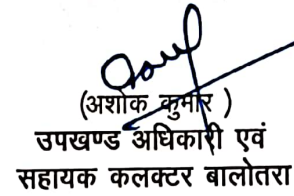 (अशोक कुमार )
उपखण्ड अधिकारी एवं
सहायक कलक्टर बालोतरा